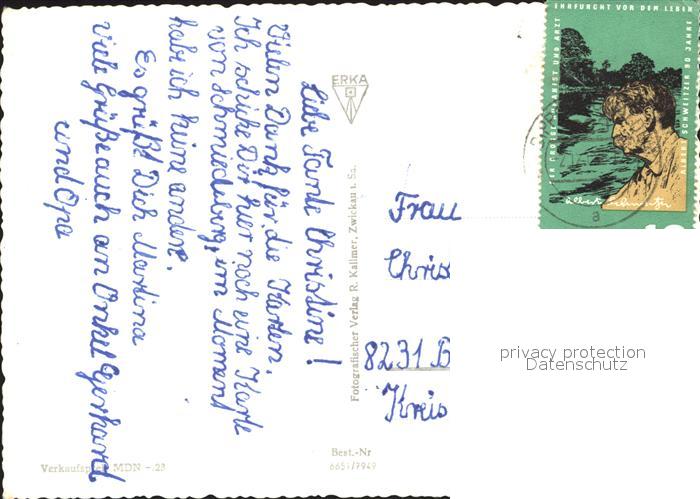 Liebe Tante Christine!
Vielen Dank für die Karten.
Ich schicke Dir hier noch eine Karte
von Schmiedeberg, im Moment
hab ich keine andere.
Es grüßt Dich Martina
viele Grüße auch an Onkel Gerhard
und Opa
ERKA
Fotografischer Verlag R. Kallmer, Zwickau i. Sa.
Frau
Chris
8231 B
Kreis
Best.-Nr
6651/7949
Verkaufspreis MDN -.23
EHRFURCHT VOR DEM LEBEN
DER GROSSE HUMANIST UND ARZT
ALBERT SCHWEITZER 90 JAHRE
a
privacy protection
Datenschutz